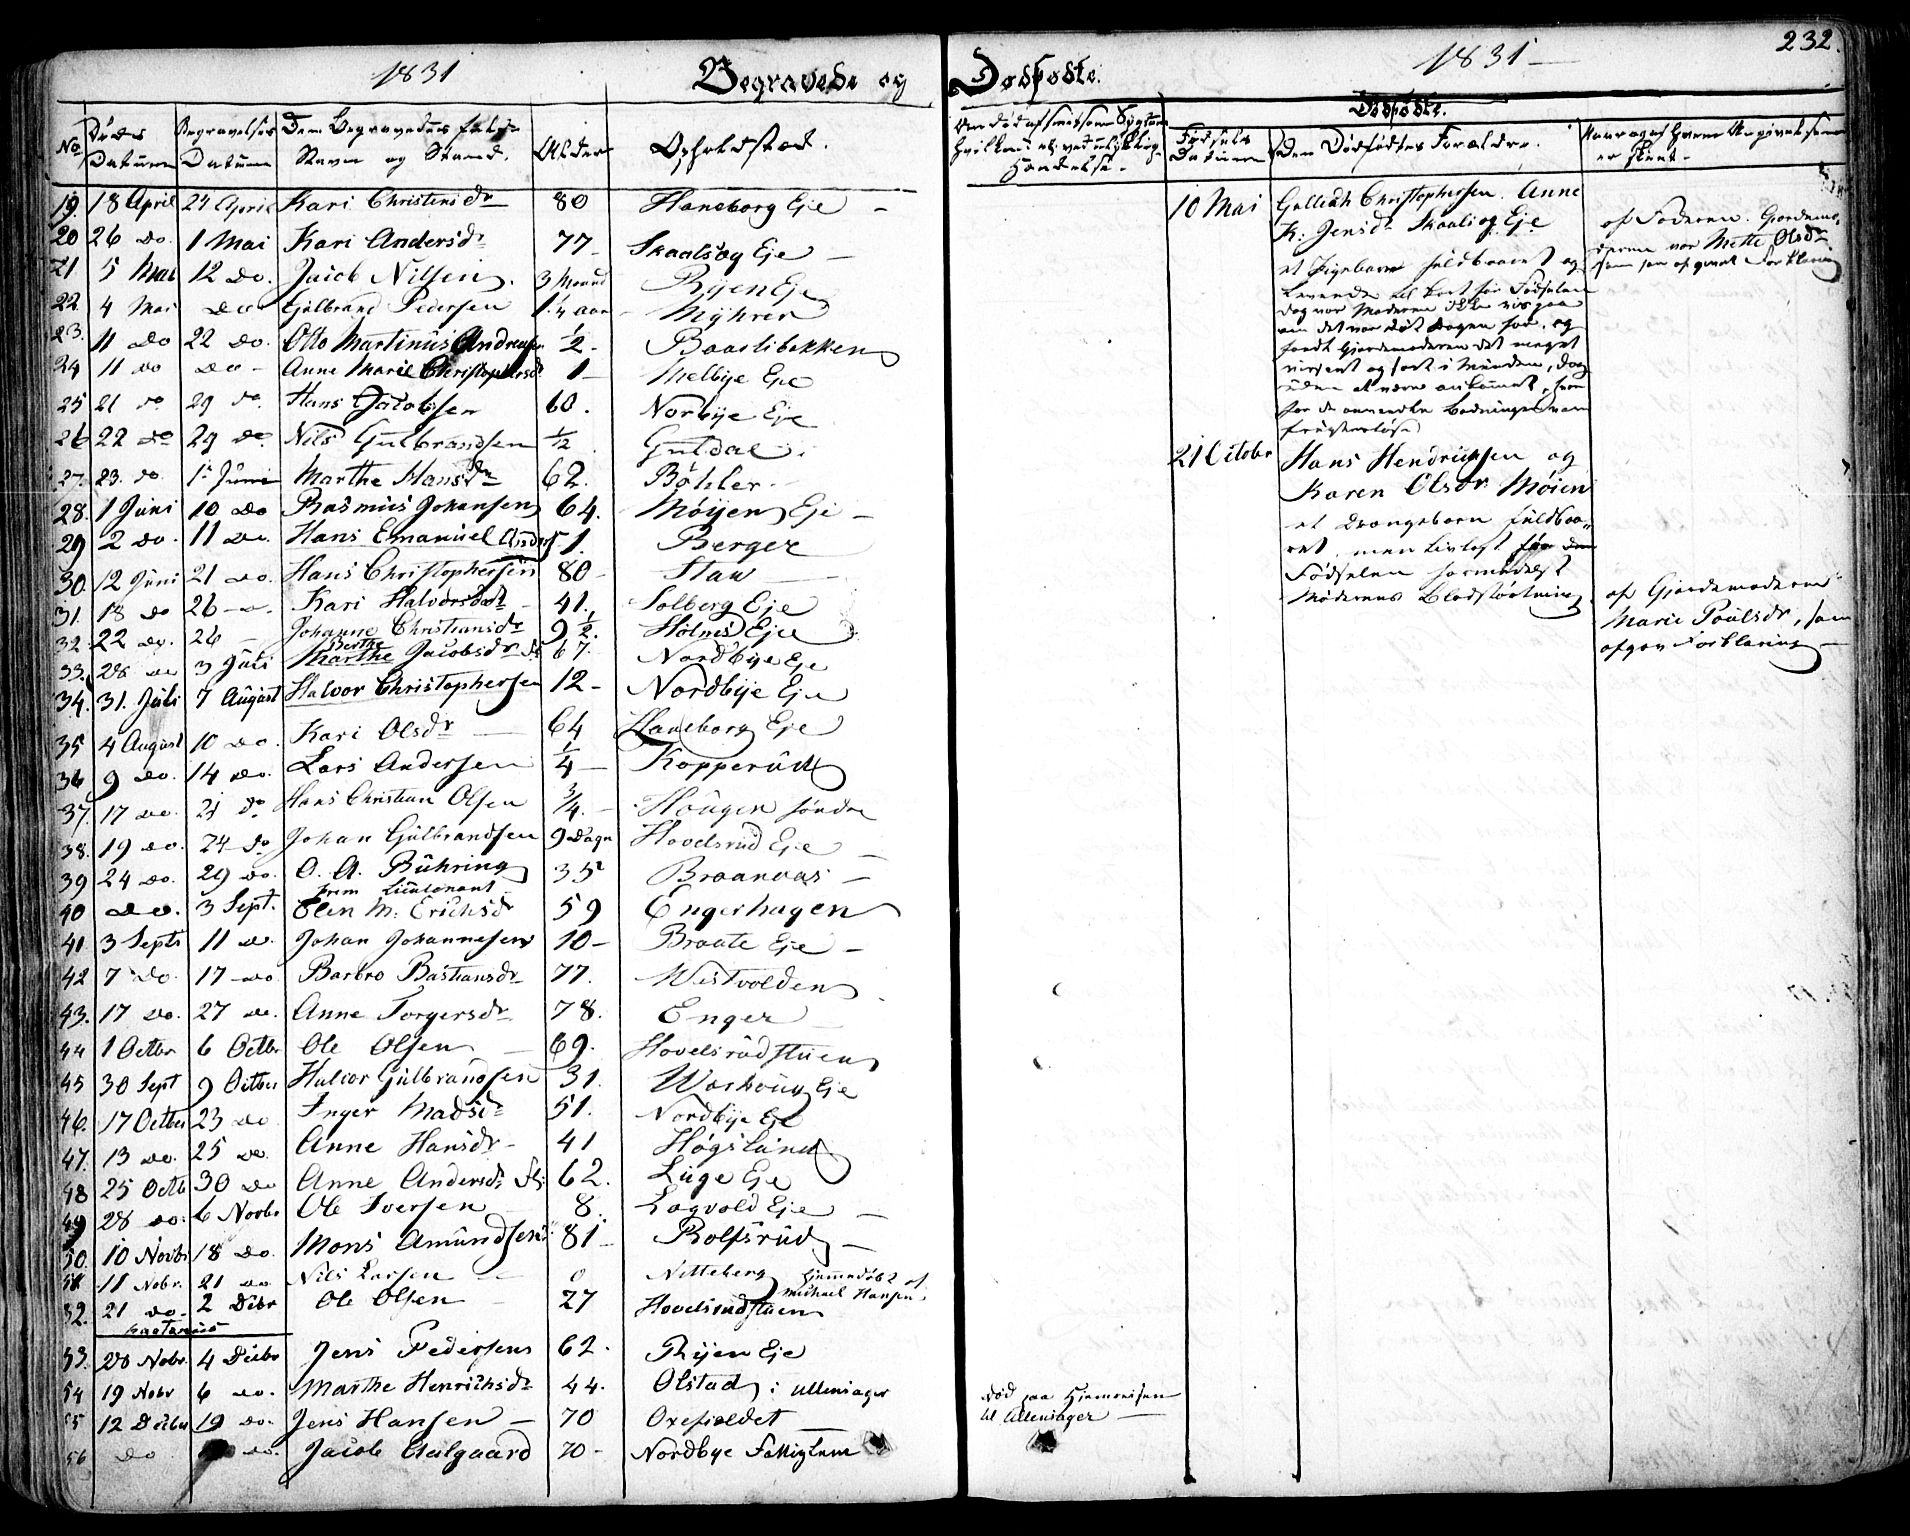 1831 Begravede og
No Døds Datum Begravelses Datum Den Begravedes fulde Navn og Stand. Alder Opholdsted.
19. 18 April 24 April Kari Christensdr 80 Haneborg Eje
20 26 do. 1 Mai Kari Andersdr 77 Skaalsøg Eje
21 5 Mai 12 do. Jacob Nilsen 3 Maaned Ryen Eje
22. 4 Mai do Gulbrand Pedersen 1 1/4 aar Myhrer
23. 11 do 22 do. Otto Martinus Andreasen 1/2 Baastibakken
24 11 do do Anne Marie Christophersdr 1 Melbye Eje
25 21 do 29 do. Hans Jacobsen 60. Norbye Eje
26 22 do 29 do. Nils Gulbrandsen 1/2 Guldal
27. 23. do. 1 Juni Marthe Hansdr 62. Bøhler
28. 1 Juni 10 do Rasmus Johansen 64. Møyen Eje
29 2 do. 11 do. Hans Emanuel 1. Berger
30. 12 Juni 21 do. Hans Christophersen 80 Staw
31. 18 do 26 Kari Halvorsdr 41. Solberg Eje
32. 22 do. 26 Johanne Christiansdr 9 1/2. Holmes Eje
Berthe
33. 28 do 3 Juli Marthe Jacobsdr 67. Nordbye Eje
34. 31. Juli 7 August Halvor Christophersen 12 Nordbye Eje
35 4 August 10 do. Kari Olsdr 64 Haneborg Eje
36 9 do. 14 do. Lars Andersen 1/4 Kopperud
37. 17 do. 21 do Hans Christian Olsen 3/4. Hougen søndre
38. 19 do. 24 do Johan Gulbrandsen 9 Dage Hovelsrud Eje
39 24 do. 29 do. O. A. Bühring 35 Braanaas
Prem Lieutenant
40 do. 3 Sept. Elen M: Erichsdr 59 Engerhagen
41. 3 Septr 11 do. Johan Johannesen 10 Braate Eje
42 7 do. 17 do Barbro Bastiansdr 77. Westvolden
43. 17 do. 27 do. Anne Torgersdr 78. Enger
44 1 Octbr 6 Octbr Ole Olsen 69. Hovelsrudstuen
45 30 Sept 9 Octber Halvor Gulbrandsen 31. Warhoug Eje
46. 17 Octber 23 do Inger Madsdr 51. Nordbye Eje
47. 13 do. 25 do. Anne Hansdr 41 Høgslund
48 25 Octb 30 do Anne Andersdr 62. Luge Eje
49 28 do. 6 Novbr Ole Iversen 8. Lagvold Eje
50. 10 Novbr 18 do. Mons Amundsen 81 Rolfsrud
51 11 Nobr. 21 do Nils Larsen 0 Nitteberg Hjemmedøbt af
Michael Hansen
52. 21 do. 2 Debr Ole Olsen 27 Hovelsrudstuen
53. 28 Nobr. 4 Decbr Jens Pedersen 62. Ryen Eje
54 19 Nobr 6 do. Marthe Henrichsdr 44. Olstad i Ullensager
55 12 Decbr 19 do. Jens Hansen 70 Oxefieldet
56 do do. Jacob Aalgaard 70 Nordbye Fattiglem
Dødfødte. 1831 232.
Dødfødte.
Fødsels Datum Den Dødfødtes Forældre.
10 Mai Golliath Christophersen. Anne
K: Jensdr Skaalsøg Eje
et Pigebarn fuldbaaret og
levende til kort før Fødselen
dog var Moderen ikke vis paa
om det var død Dagen før, og
fandt Gjordemoderen det meget
uden
af Faderen. Gjordemo-
deren var Mette Olsdr
som gav Forklaring
21 October Hans Hendrichsen og
Karen Olsdr Møien
et Drengebarn fuldbaa-
ret, men livløst før den
Fødselen formedelst
Moderens Blodstyrtning
af Gjordemoderen
Marie Poulsdr, som
afgav Forklaring
død paa Hjemreisen
til Ullensager